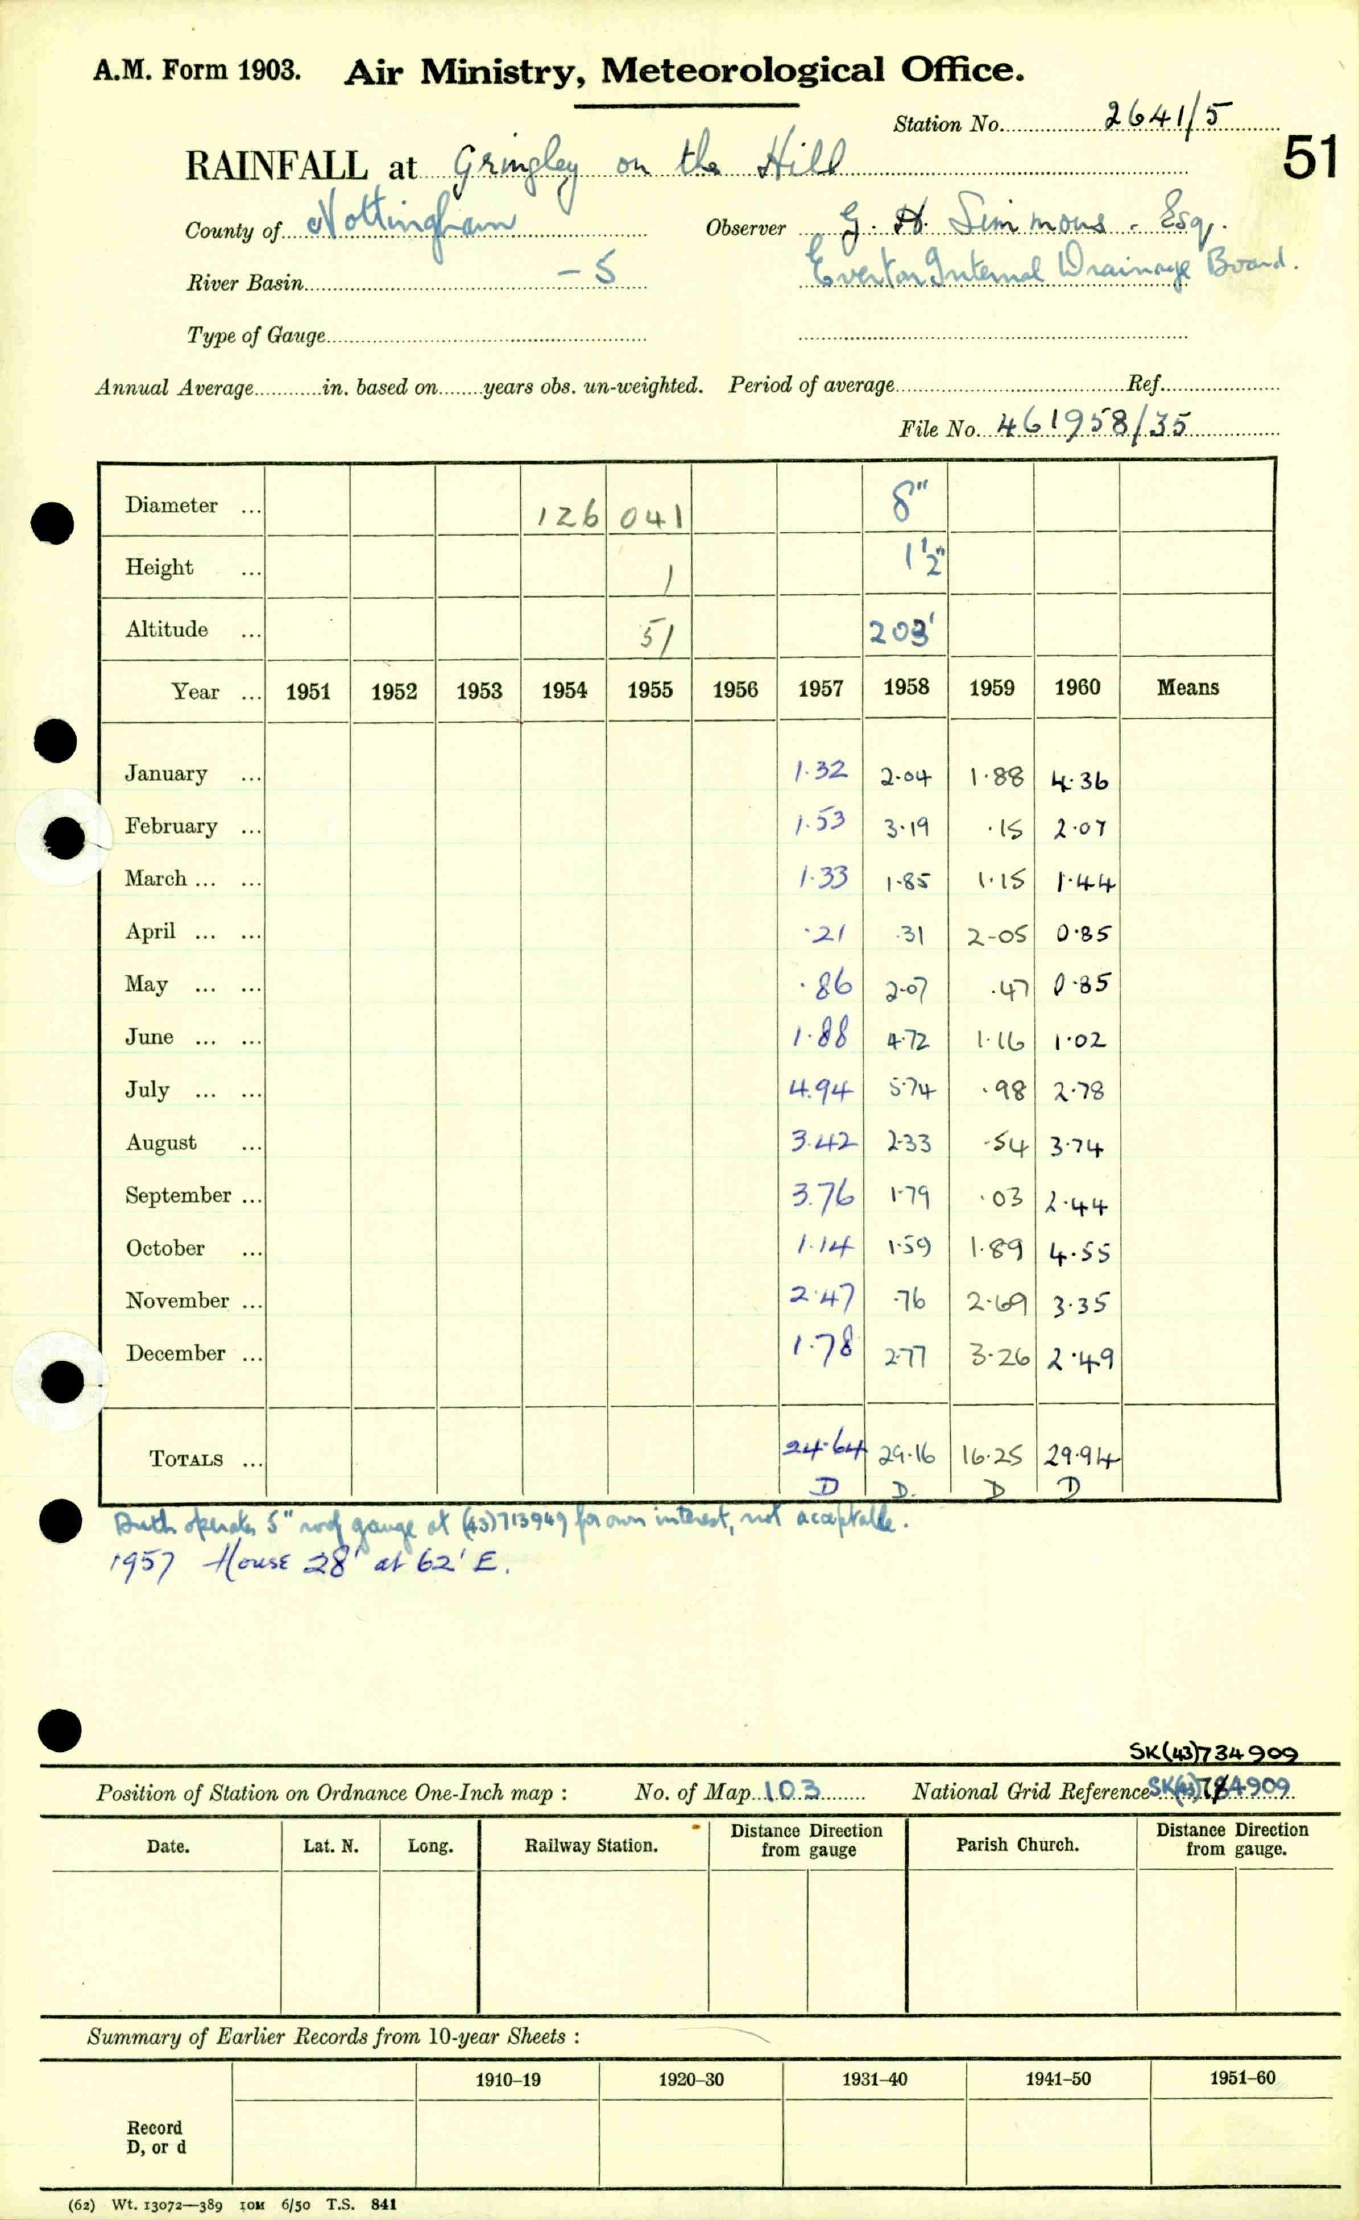 A.M. Form 1903. Air Ministry, Meteorological Office.
Station No. 2641/5
51
RAINFALL at Gringley on the Hill
County of Nottingham Observer G. H. Simmons. Esq.
River Basin -5 Everton Internal Drainage Board.
Type of Gauge
Annual Average in. based on years obs. un-weighted. Period of average Ref.
File No. 461958/35
Diameter ... 126 041 8"
Height ... 1 1½"
Altitude ... 51 203'
Year ... 1951 1952 1953 1954 1955 1956 1957 1958 1959 1960 Means
January ... 1.32 2.04 1.88 4.36
February ... 1.53 3.19 .15 2.07
March ... ... 1.33 1.85 1.15 1.44
April ... ... .21 .31 2.05 0.85
May ... ... .86 2.07 .47 0.85
June ... ... 1.88 4.72 1.16 1.02
July ... ... 4.94 5.74 .98 2.78
August ... 3.42 2.33 .54 3.74
September ... 3.76 1.79 .03 2.44
October ... 1.14 1.59 1.89 4.55
November ... 2.47 .76 2.69 3.35
December ... 1.78 2.77 3.26 2.49
TOTALS ... 24.64 29.16 16.25 29.94
D D. D D
operates 5" roof gauge at (43)713949 for own interest, not acceptable.
1957 House 28' at 62' E.
SK(43)734909
Position of Station on Ordnance One-Inch map : No. of Map 103 National Grid Reference SK(43)784909
Date. Lat. N. Long. Railway Station. Distance from Direction gauge Parish Church. Distance from Direction gauge.
Summary of Earlier Records from 10-year Sheets :
1910–19 1920–30 1931–40 1941–50 1951–60
Record
D, or d
(62) Wt. 13072—389 10M 6/50 T.S. 841